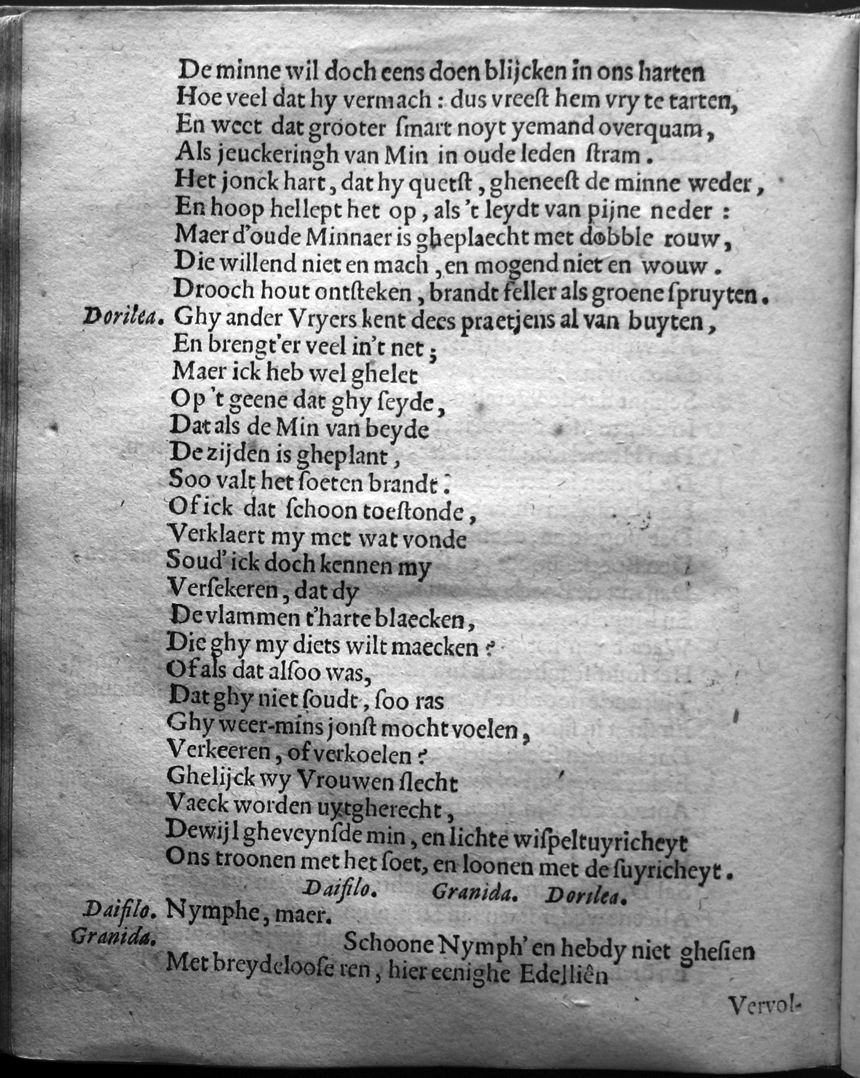 De minne wil doch eens doen blijcken in ons harten
Hoe veel dat hy vermach : dus vreeſt hem vry te tarten,
En weet dat grooter ſmart noyt yemand overquam,
Als jeuckeringh van Min in oude leden ſtram.
Het jonck hart, dat hy quetſt, gheneeſt de minne weder,
En hoop hellept het op, als 't leydt van pijne neder :
Maer d'oude Minnaer is gheplaecht met dobble rouw,
Die willend niet en mach, en mogend niet en wouw.
Drooch hout ontſteken, brandt feller als groene ſpruyten.
Dorilea. Ghy ander Vryers kent dees praetjens al van buyten,
En brengt'er veel in't net;
Maer ick heb wel ghelet
Op 't geene dat ghy ſeyde,
Dat als de Min van beyde
De zijden is gheplant,
Soo valt het ſoeten brandt:
Of ick dat ſchoon toeſtonde,
Verklaert my met wat vonde
Soud' ick doch kennen my
Verſekeren, dat dy
De vlammen t'harte blaecken,
Die ghy my diets wilt maecken?
Of als dat alſoo was,
Dat ghy niet ſoudt, ſoo ras
Ghy weer-mins jonſt mocht voelen,
Verkeeren, of verkoelen?
Ghelijck wy Vrouwen ſlecht
Vaeck worden uytgherecht,
Dewijl gheveynſde min, en lichte wiſpeltuyricheyt
Ons troonen met het ſoet, en loonen met de ſuyricheyt.
Daifilo. Granida. Dorilea.
Daifilo. Nymphe, maer.
Granida. Schoone Nymph' en hebdy niet gheſien
Met breydelooſe ren, hier eenighe Edelliên
Vervol-